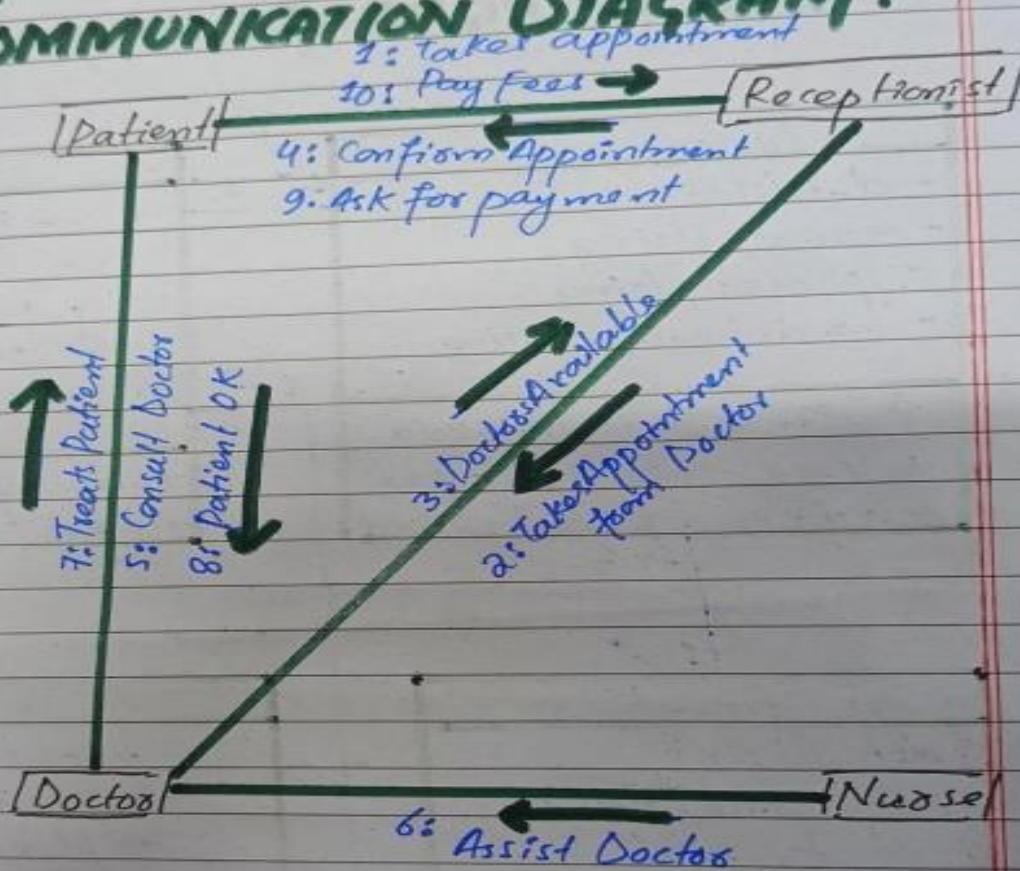 OMMUNICATION DIAGRAM:
1: Takes appointment
10: Pay Fees
Receptionist
Patient
4: Confirm Appointment
9: Ask for payment
7: Treats Patient
5: Consult Doctor
8: Patient OK
3: DoctorsAvailable
2: TakesAppointment
from Doctor
Doctor
Nurse
6:
Assist Doctor